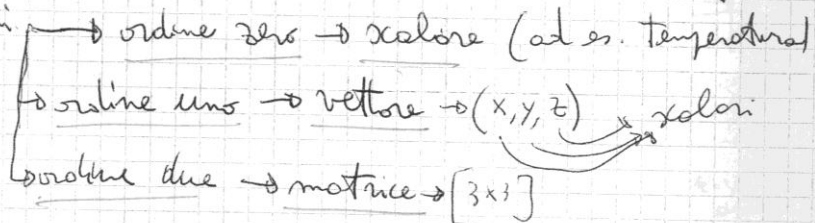 → ordine zero → scalare (ad es. temperatura)
→ ordine uno → vettore → (x, y, z) scalari
→ ordine due → matrice → [3x3]